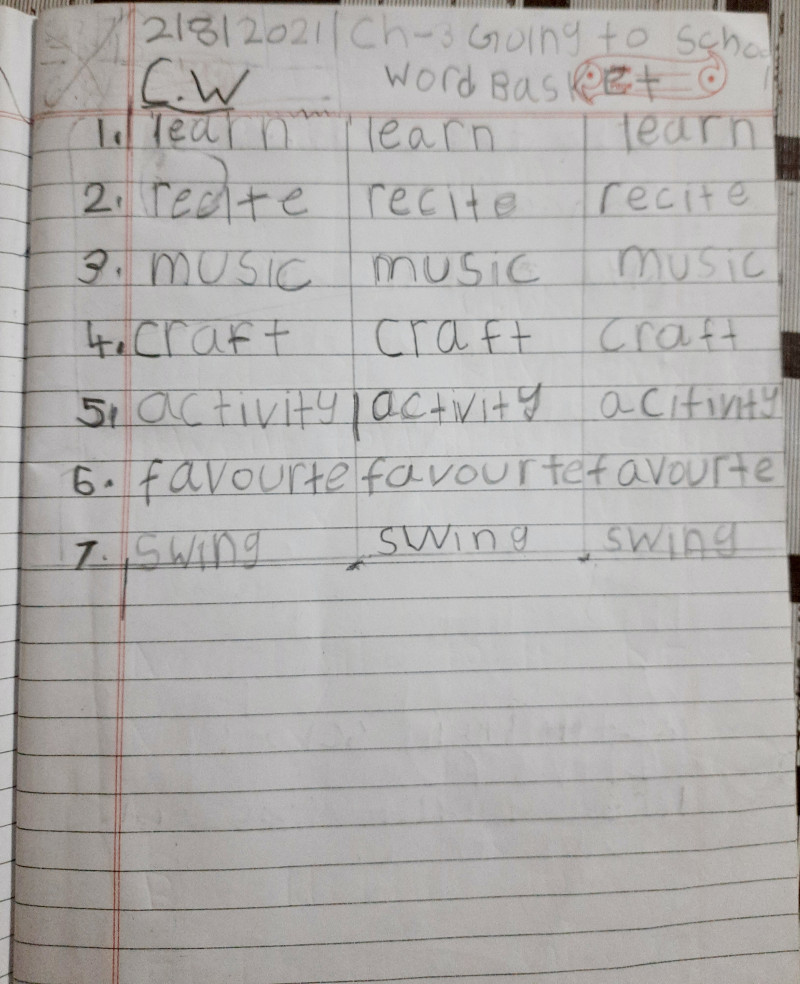 2/8/2021 Ch-3 Going to School
C.W Word Basket
1. learn learn learn
2. recite recite recite
3. music music music
4. craft craft craft
5. activity activity acitivity
6. favourte favourte favourte
7. swing swing swing